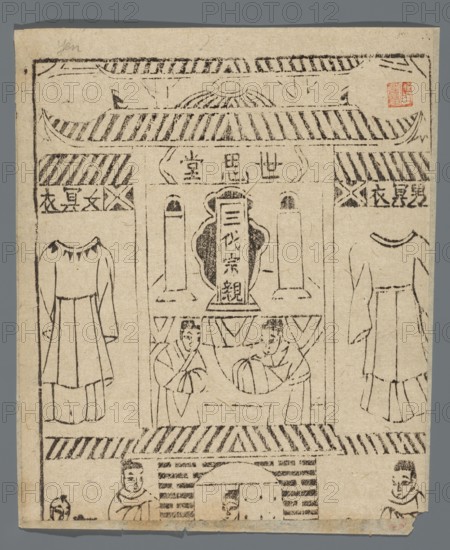 世思堂
男冥衣
三代宗親
女冥衣
PHOTO 12